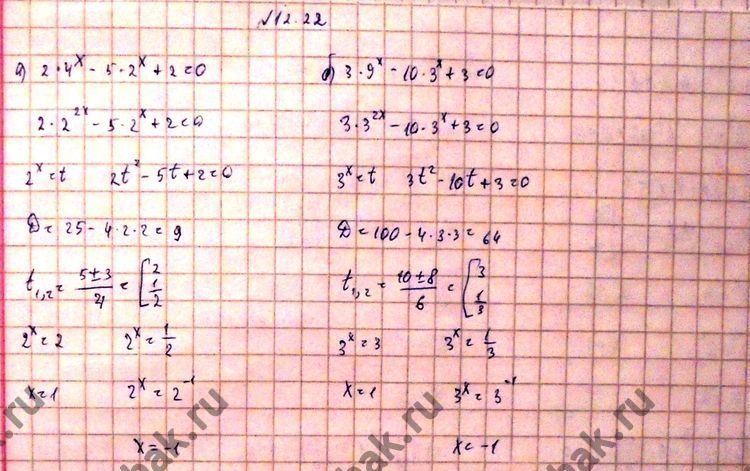 №12.22
а) 2·4^x - 5·2^x + 2 = 0
2·2^{2x} - 5·2^x + 2 = 0
2^x = t   2t^2 - 5t + 2 = 0
D = 25 - 4·2·2 = 9
t_{1,2} = (5±3)/4 = [2; 1/2
2^x = 2   2^x = 1/2
x = 1   2^x = 2^{-1}
x = -1
б) 3·9^x - 10·3^x + 3 = 0
3·3^{2x} - 10·3^x + 3 = 0
3^x = t   3t^2 - 10t + 3 = 0
D = 100 - 4·3·3 = 64
t_{1,2} = (10±8)/6 = [3; 1/3
3^x = 3   3^x = 1/3
x = 1   3^x = 3^{-1}
x = -1
bak.ru
bak.ru